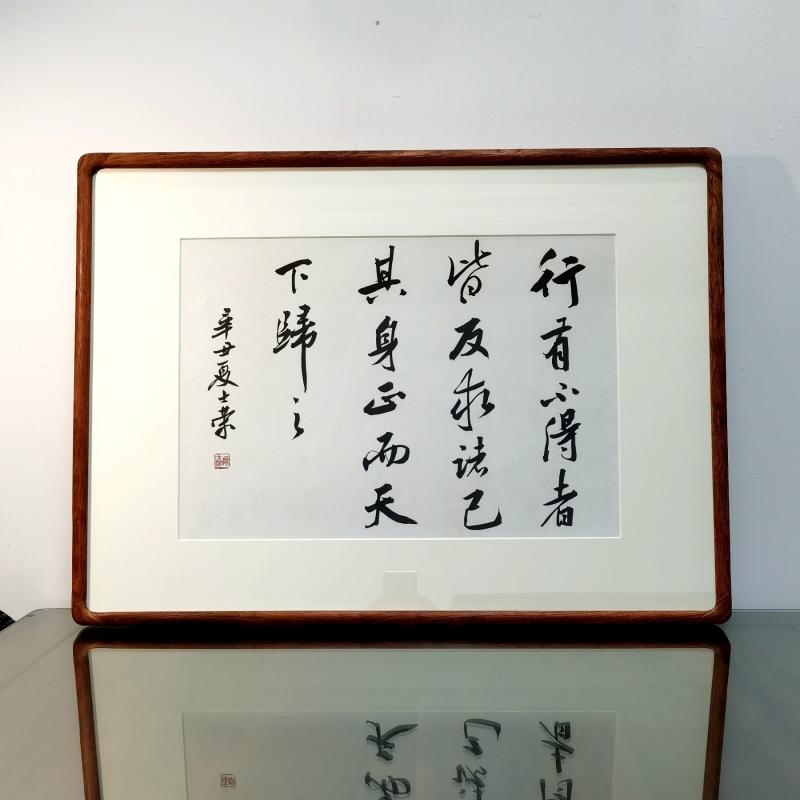 行有不得者
皆反求诸己
其身正而天
下歸之
辛丑夏士荣